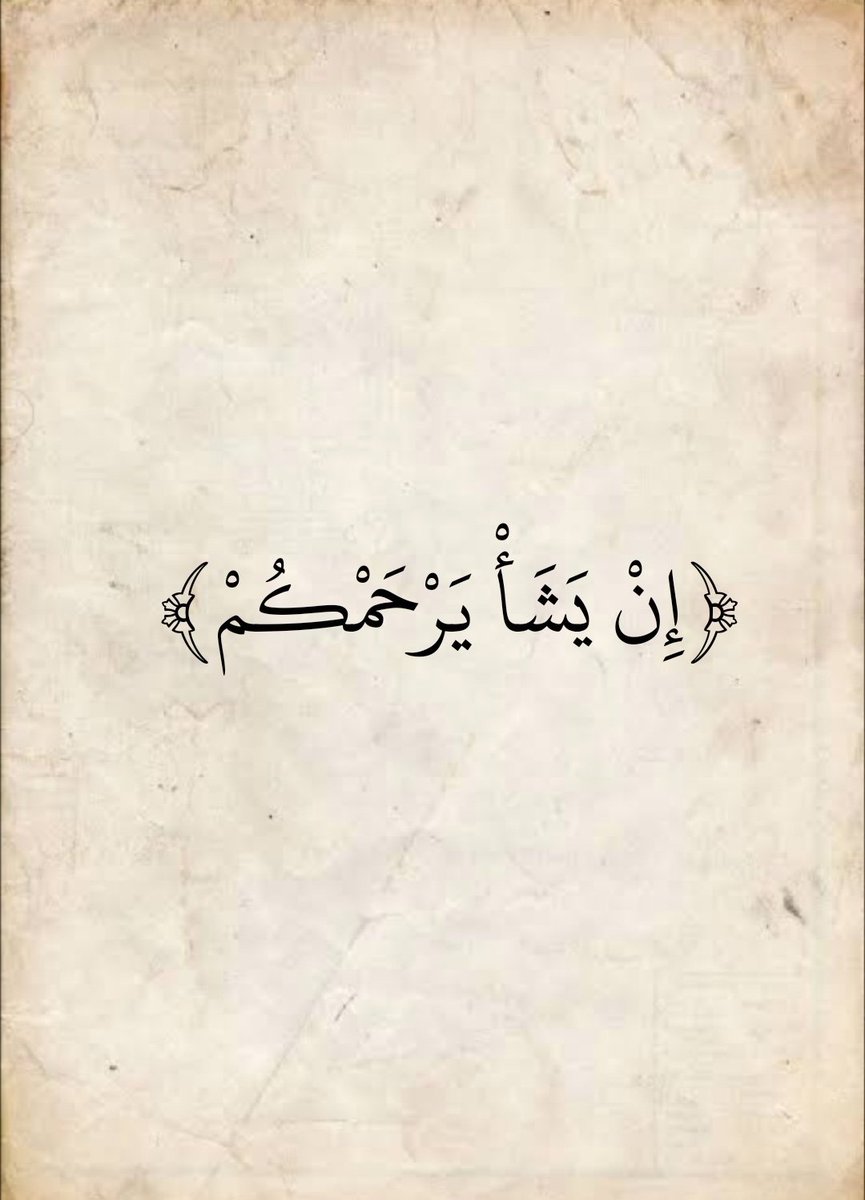 ﴿إِنْ يَشَأْ يَرْحَمْكُمْ﴾